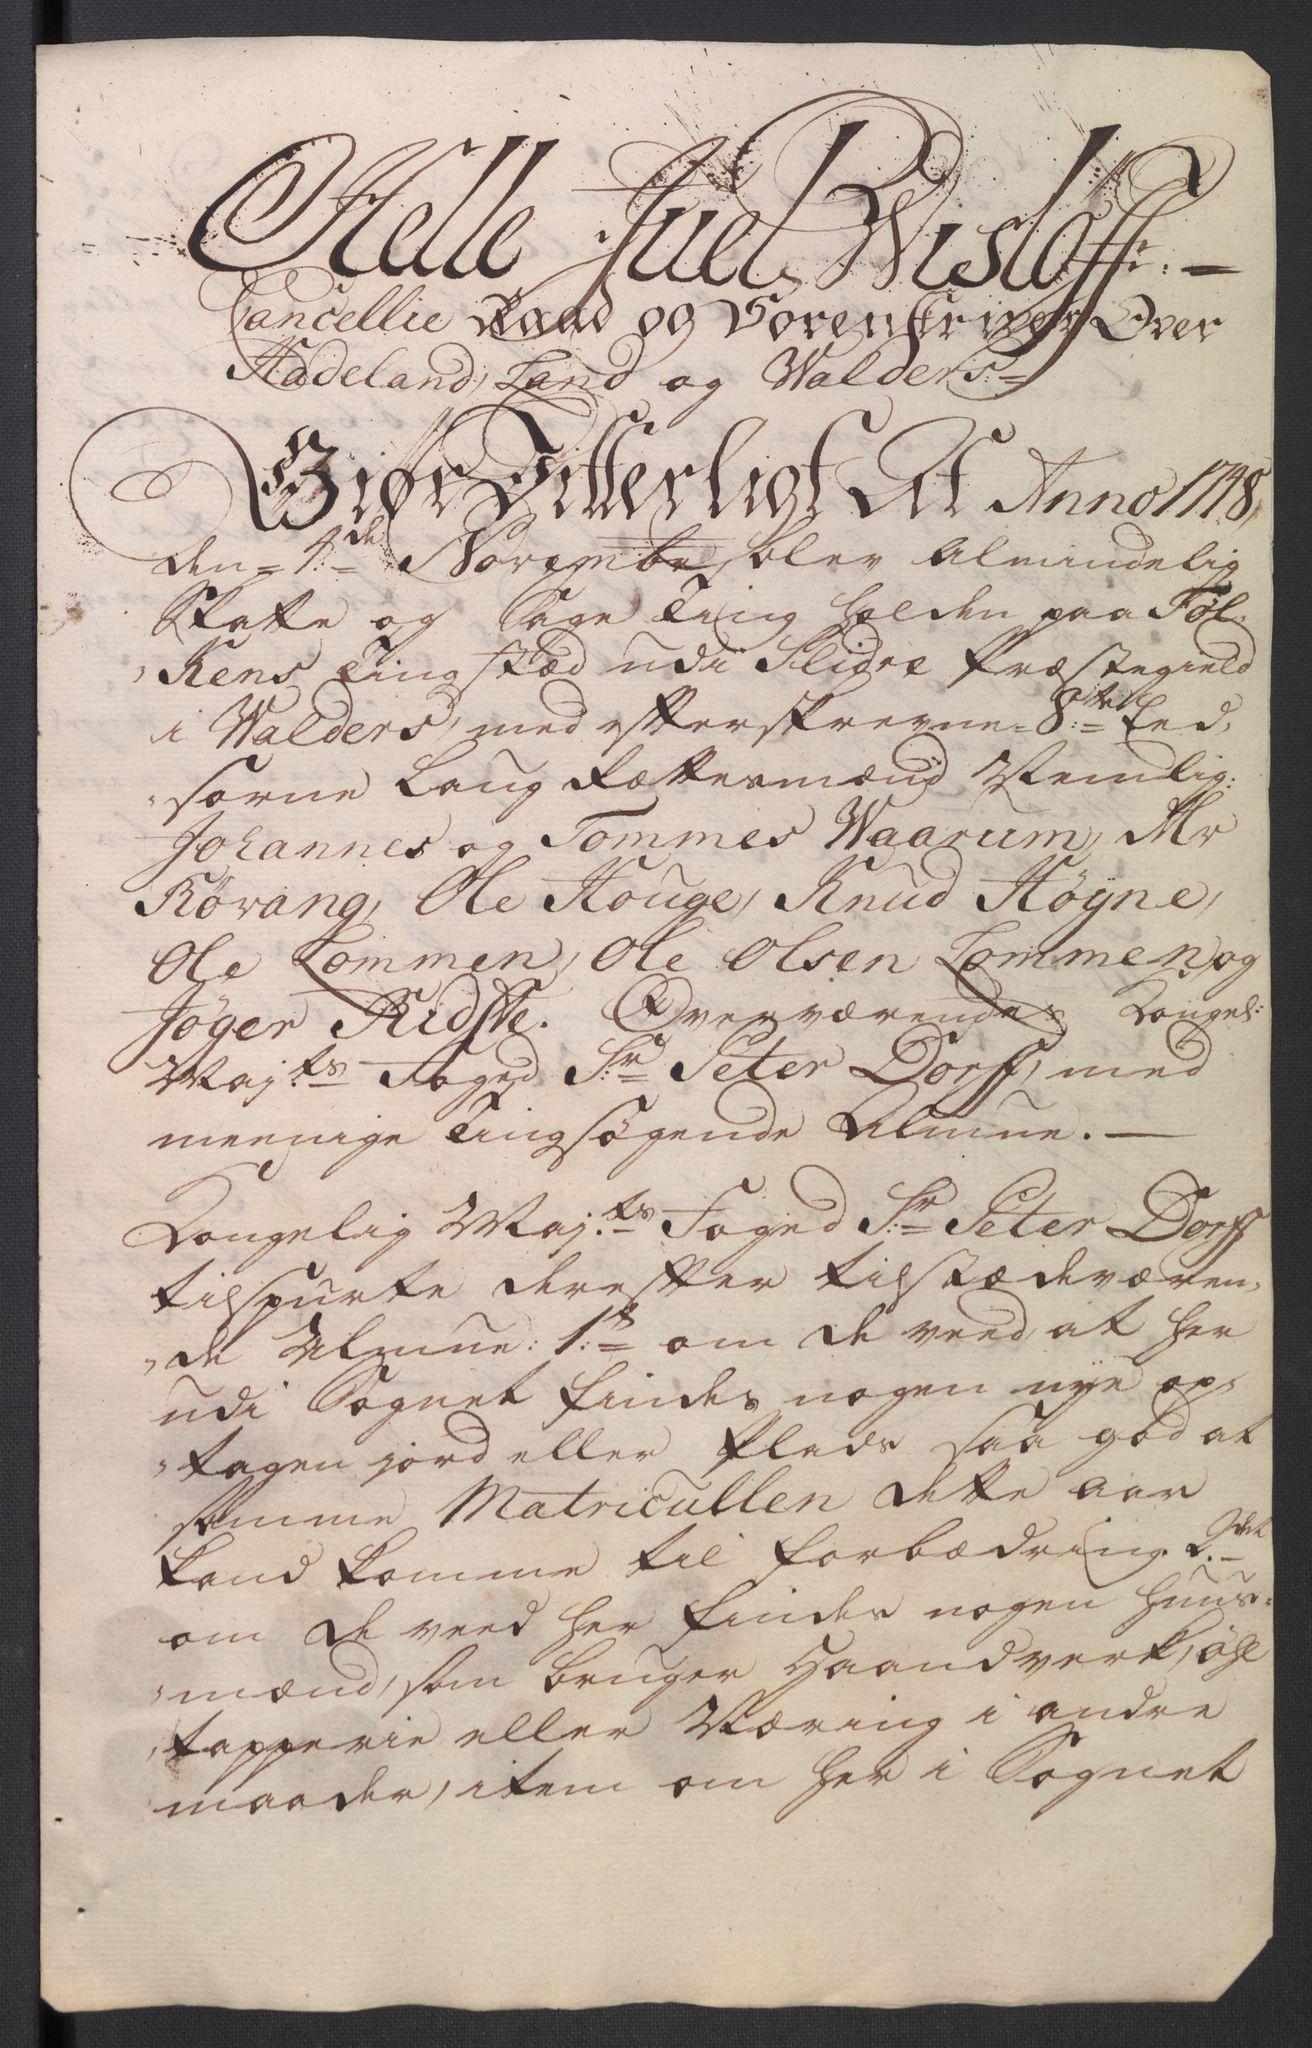 Helle Juel Wisløff
Cancellie Raad og Sorenskriver Over
Hadeland, Land og Walders
Giør Vitterligt At Anno 1748,
den 4de Novembr blev Almindelig
Skatte og Sage Ting holden paa Føl-
kens Tingstæd udi Slidre Præstegield
i Walders, med efterskrevne 8te Eed-
sorne Laug Rættesmænd Nemlig:
Johannes og Tommes Waarum,
Rövang, Ole Houge, Knud Höyne,
Ole Lommen, Ole Olsen Lommen, og
Jöger Ridste. Overværendes Kongel:
Majts Foged Sr Peter Dorff, med
meenige Tingsögende Almue.
Kongelig Majts Foged Sr Peter Dorff
tilspurte derefter tilstædeværen-
de Almue: 1te om de veed at her
udi Sognet findes nogen nye op-
tagen jord eller Plads saa god at
samme Matricullen dette aar
kand komme til forbædring. 2det
om de veed her findes nogen Huus-
mænd, som bruger Haandverk, öhl
tapperie eller Næring i andre
maader, item om her i Sognet